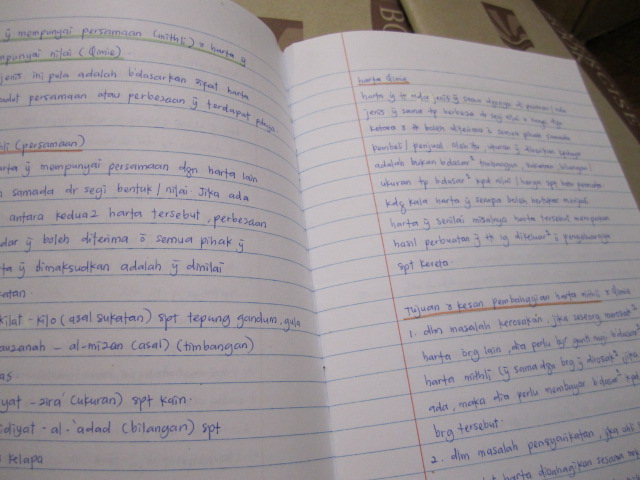 ȳ mempunyai persamaan (mithli) & harta ȳ
mpunyai nilai (Qmie).
jenis ini pula adalah b'dasarkan sipat harta
sudut persamaan atau perbezaan ȳ terdapat pdnya.
hli (persamaan)
arta ȳ mempunyai persamaan dgn harta lain
samada dr segi bentuk / nilai. Jika ada
antara kedua2 harta tersebut, perbezaan
dar ȳ boleh diterima ō semua pihak ȳ
ta ȳ dimaksudkan adalah ȳ dinilai
katan.
kilat - kilo (asal sukatan) spt tepung gandum, gula
auzanah - al-mizan (asal) (timbangan)
as.
yat - zira' (ukuran) spt kain.
idiyat - al-'adad (bilangan) spt
kelapa
harta Qimie
harta ȳ tk ada jenis ȳ sama
jenis ȳ sama tp berbeza dr segi nilai & harga dgn
ketara & tk boleh diterima ō semua pihak samada
pembeli / penjual oleh itu ukuran ȳ
adalah bukan b'dasar² timbangan, sukatan, bilangan /
ukuran tp b'dasar² kpd nilai / harga
kdg kala harta ȳ serupa boleh bertukar menjadi
harta ȳ senilai misalnya harta tersebut merupakan
hasil perbuatan ȳ tk lg dikeluar²
spt kereta.
Tujuan & kesan pembahagian harta mithli & Qimie
1. dlm masalah kerosakan, jika seseorg merosak²
harta org lain, dia perlu byr ganti rugi b'dasar²
harta mithli (ȳ sama dgn brg ȳ dirosak²) jika
ada, maka dia perlu membayar b'dasar² kpd
brg tersebut.
2. dlm masalah pensyarikatan, jika ahli
harta dibahagikan sesama